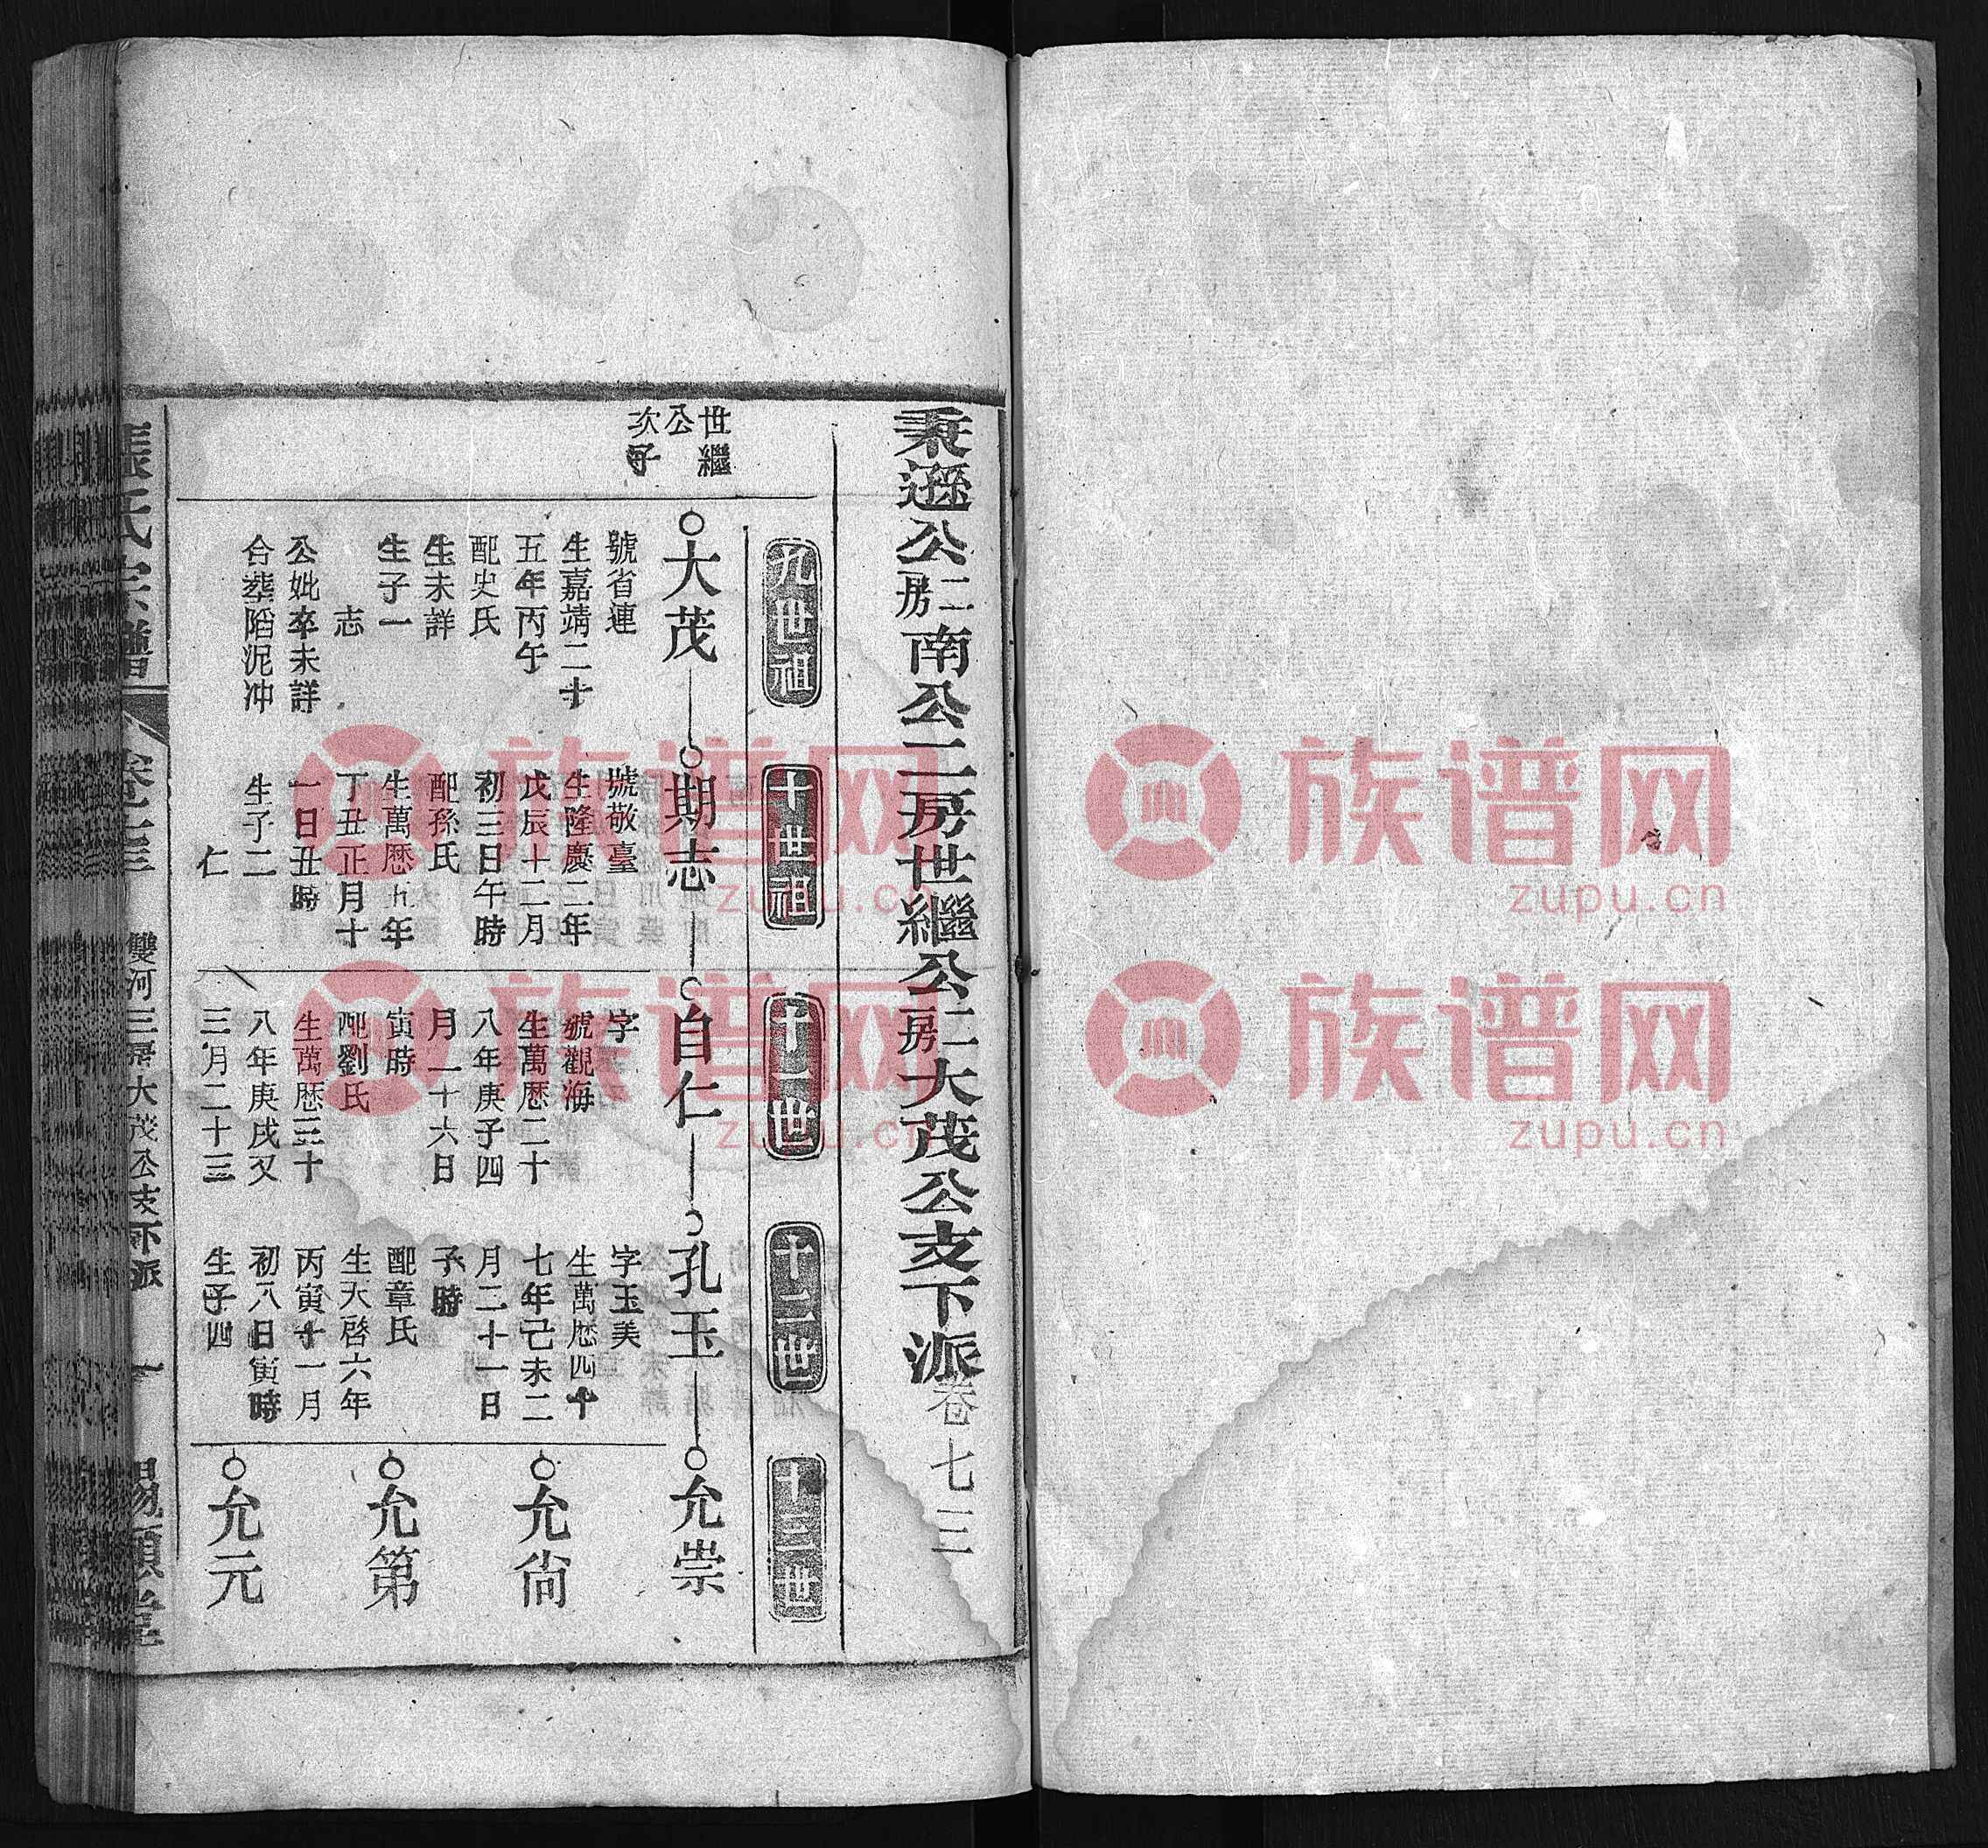 秉遜公二房南公二房世繼公二房大茂公支下派 卷七三
九世祖
十世祖
十一世
十二世
十三世
世繼
公
次子
大茂
號省連
生嘉靖二十
五年丙午
配史氏
生未詳
生子一
志
公妣卒未詳
合塟陷泥冲
期志
號敬臺
生隆慶二年
戊辰十二月
初三日午時
配孫氏
生萬歷五年
丁丑正月十
一日丑時
生子二
仁
自仁
字
號觀海
生萬歷二十
八年庚子四
月一十六日
寅時
配劉氏
生萬歷三十
八年庚戌又
三月二十三
孔玉
字玉美
生萬歷四十
七年己未二
月二十一日
子時
配章氏
生天啓六年
丙寅十一月
初八日寅時
生子四
允崇
允尙
允第
允元
張氏宗譜
卷七三
雙河三房大茂公支下派
一
族谱网
zupu.cn
族谱网
zupu.cn
族谱网
zupu.cn
族谱网
zupu.cn